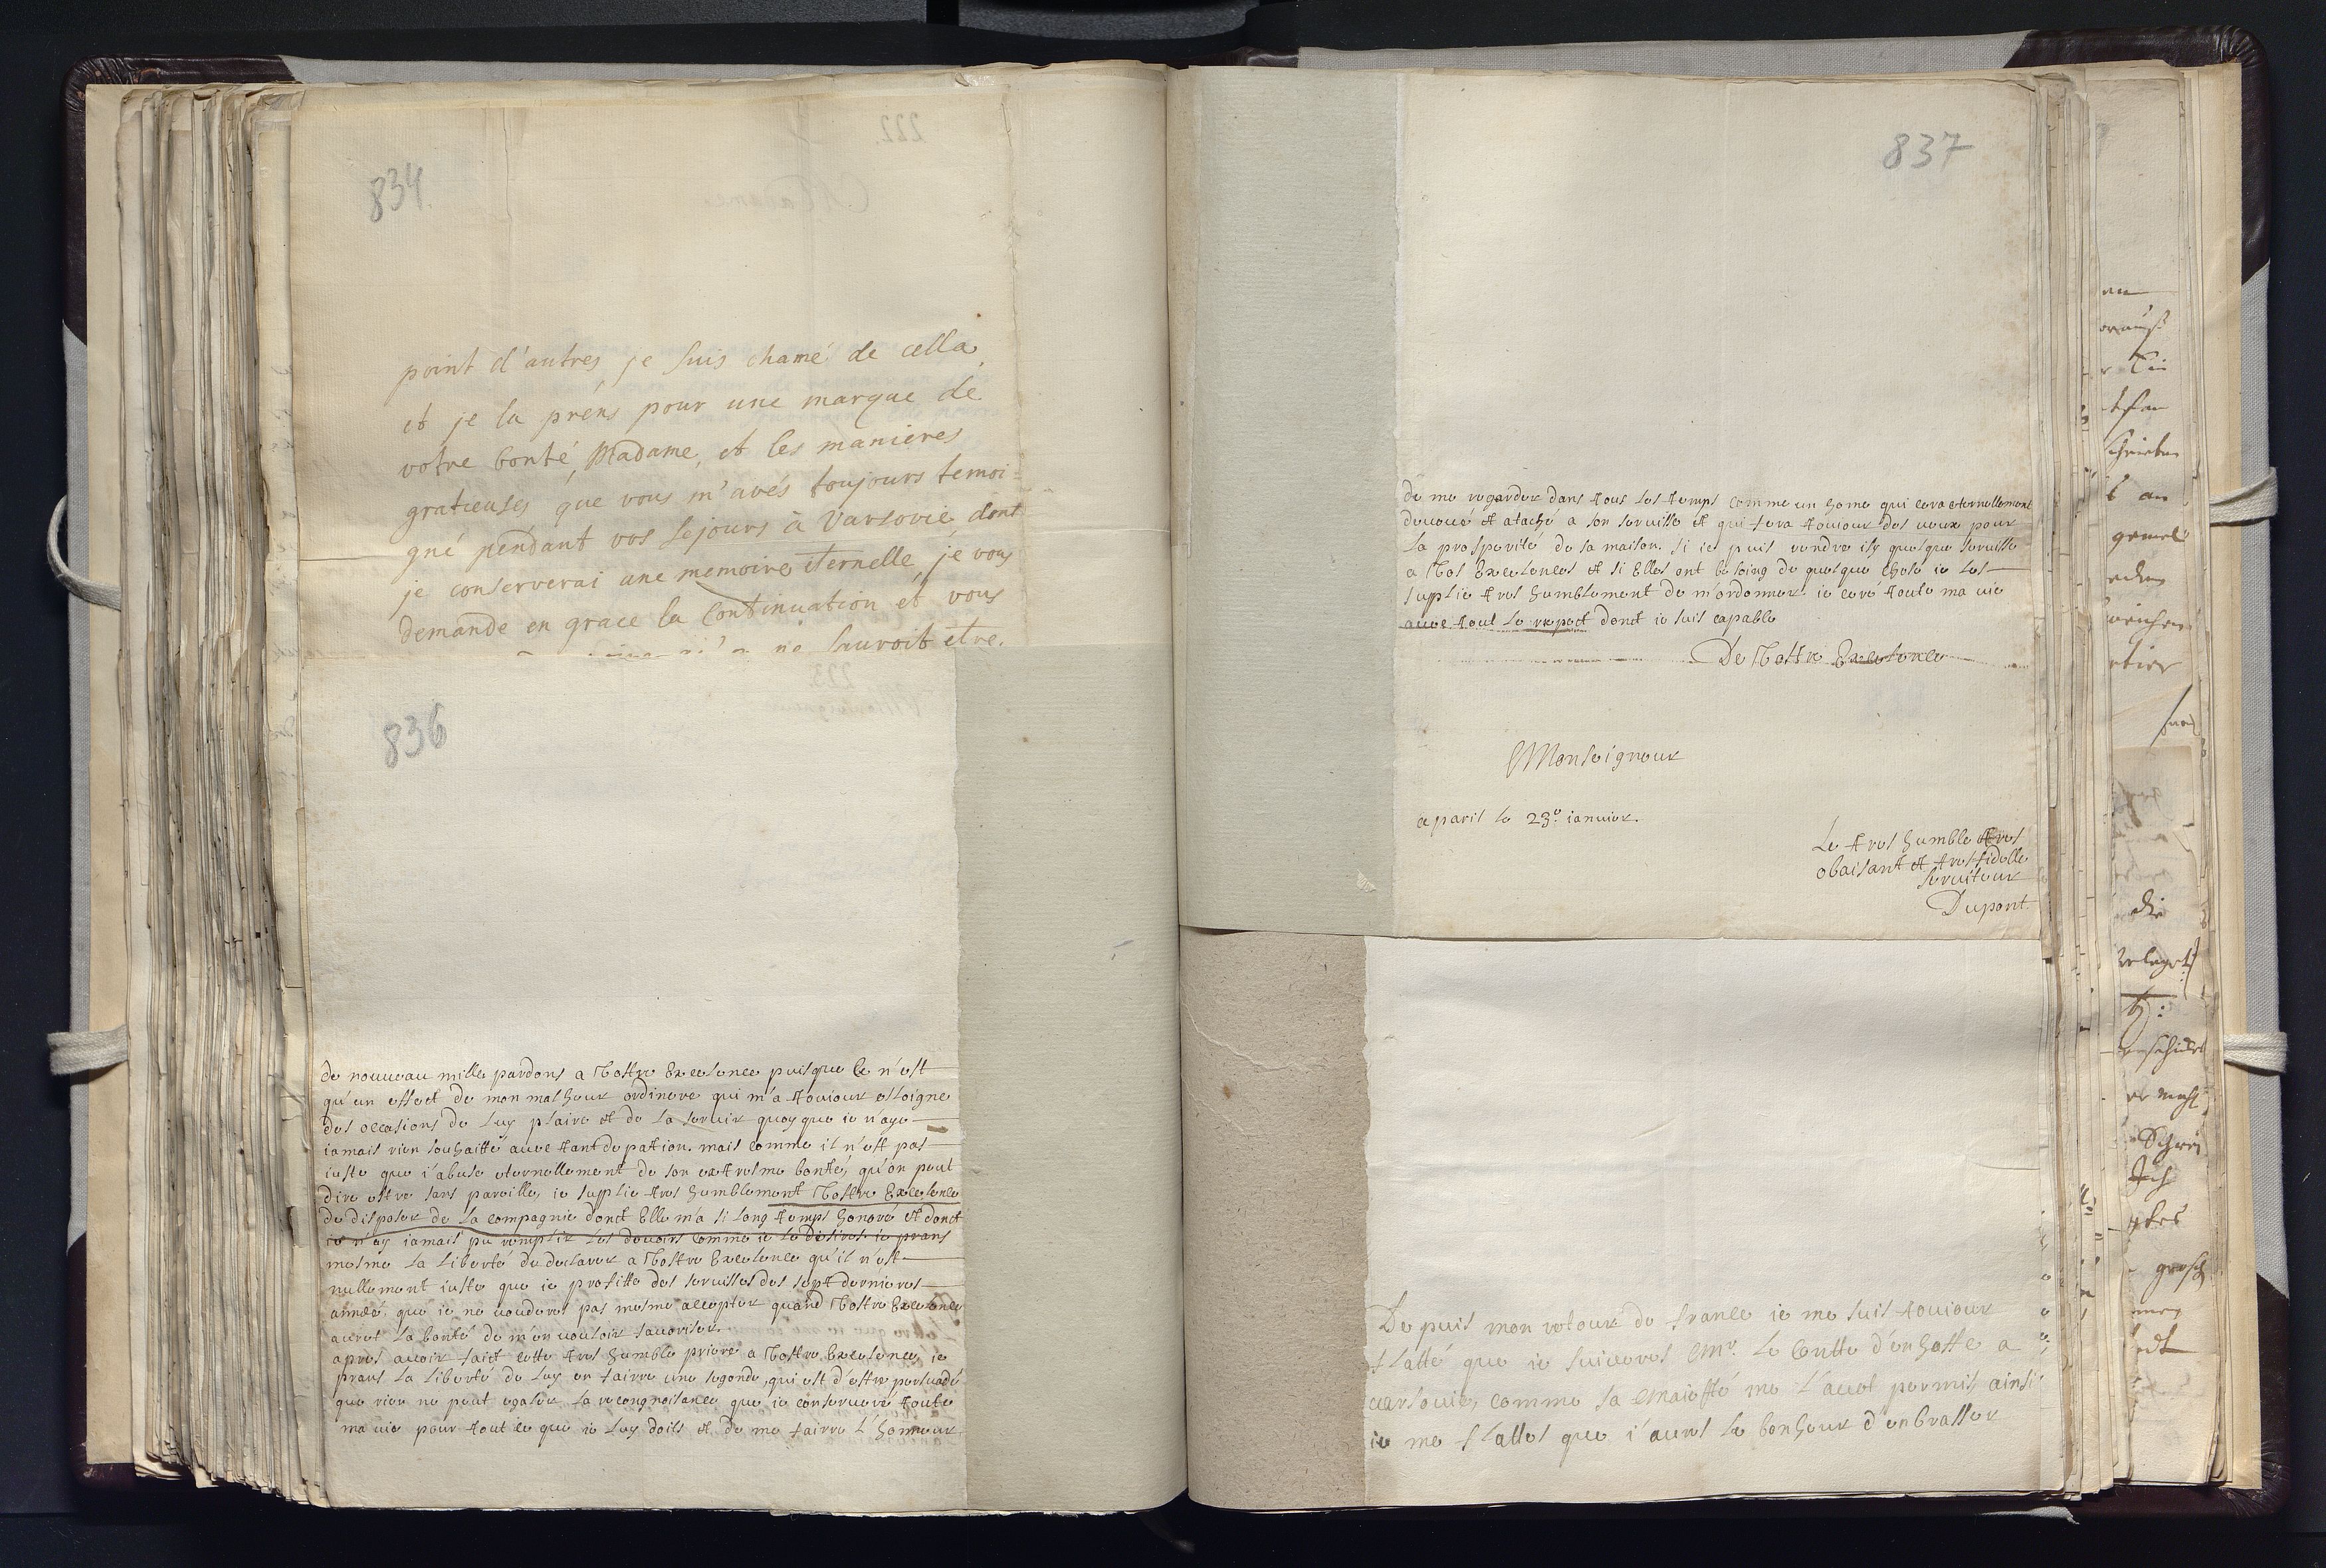 834.
point d'autres, je suis charmé de cella,
et je la prens pour une marque de
votre bonté, Madame, et les manieres
gratieuses que vous m'avés toujours temoi=
gné pendant vos sejours à Varsovie, dont
je conserverai une memoire eternelle, je vous
demande en grace la continuation et vous
ne sauroit etre.
836
de nouveau mille pardons a Vostre Excelence puisque ce n'est
qu'un effect de mon malheur ordinere qui m'a toujour esloigne
des occasions de luy plaire et de la servir quoyque ie n'aye
iamais rien souhaitté avec tant de pation. mais comme il n'est pas
iuste que i'abuse eternellement de son extresme bonté, qu'on peut
dire estre sans pareille, ie suplie tres humblement Vostre Excelence
de disposer de la compagnie donct Elle m'a si long temps honoré et donct
ie n'ay iamais pu remplir les devoirs comme ie le desires. ie prans
mesme la liberté de declarer a Vostre Excelence qu'il n'est
nullement iuste que ie profitte des servisses des sept dernieres
année que ie ne vouderes pas mesme accepter quand Vostre Excelence
auret la bonté de m'en vouloir favoriser.
apres avoir faict cette tres humble priere a Vostre Excelence, ie
prans la liberté de luy en fairre une segonde, qui est d'estre persuadé
que rien ne peut egaler la recongnoisance que ie conserveré toute
ma vie pour tout ce que ie luy doits et de me fairre l'honneur
837
de me regarder dans tous les temps comme un home qui cera eternellement
devoué et ataché a son servisse et qui fera toujour des veux pour
la prosperité de sa maison. si ie puis rendre isy quelque servisse
a Vos Excelences et si Elles ont besoing de quelque chose ie les
suplie tres humblement de m'ordonner. ie ceré toute ma vie
avec tout le respect donct ie suis capable
De Vostre Excelence
Monseigneur
a paris le 23e. ianvier.
Le tres humble tres
obaisant et tres fidelle
serviteur
Dupont
Depuis mon retour de france ie me suis toujour
flatté que ie suiveres Mr. le Contte d'enhoffe a
varsovie, comme sa Maiesté me l'avet permis, ainsi
ie me flattes que i'aures le bonheur d'enbrasser